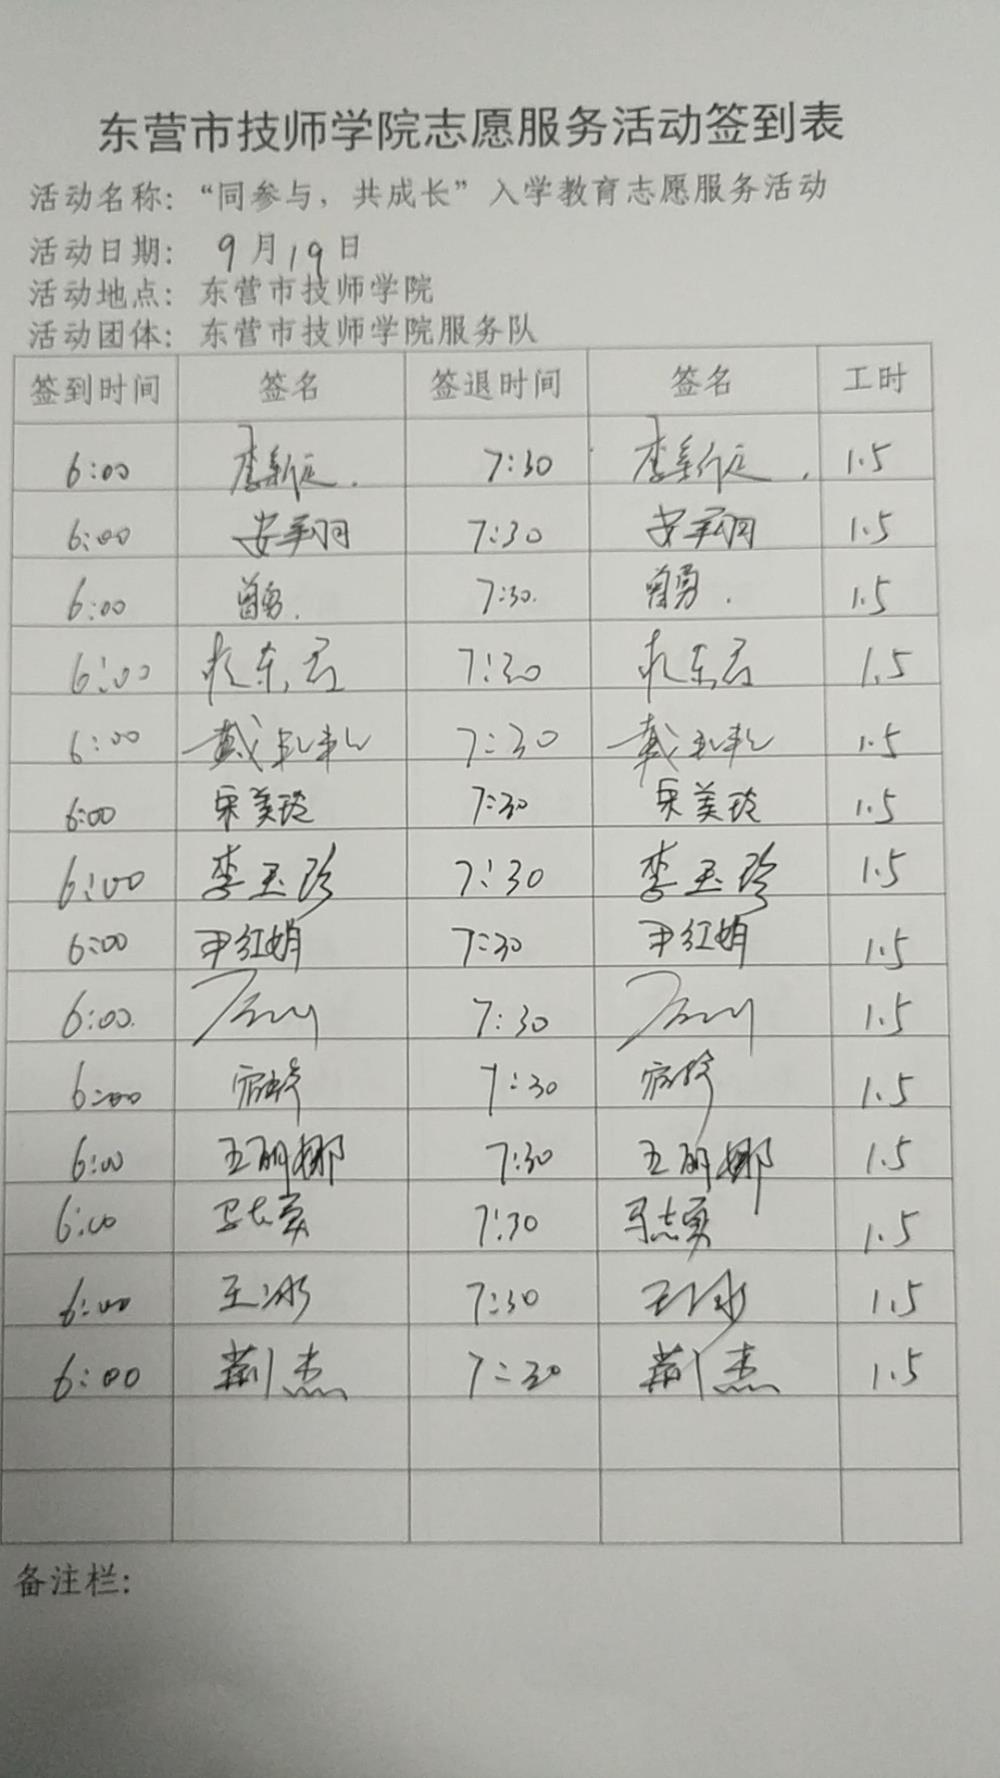 东营市技师学院志愿服务活动签到表
活动名称：“同参与，共成长”入学教育志愿服务活动
活动日期： 9月19日
活动地点：东营市技师学院
活动团体：东营市技师学院服务队
签到时间 签名 签退时间 签名 工时
6:00 李新 7:30 李新 1.5
6:00 安 7:30 安 1.5
6:00 曾勇. 7:30. 曾勇. 1.5
6:00 东君 7:30 东君 1.5
6:00 戴 7:30 戴 1.5
6:00 宋美玲 7:30 宋美玲 1.5
6:00 李玉珍 7:30 李玉珍 1.5
6:00 尹红娟 7:30 尹红娟 1.5
6:00. 7:30 1.5
6:00 7:30 1.5
6:00 王丽娜 7:30 王丽娜 1.5
6:00 马志勇 7:30 马志勇 1.5
6:00 王冰 7:30 王冰 1.5
6:00 荆杰 7:30 荆杰 1.5
备注栏：